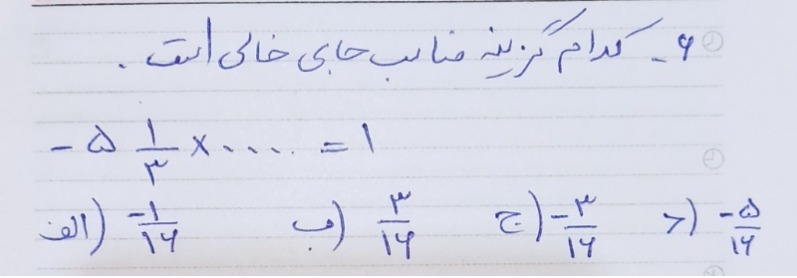 ۶- کدام گزینه مناسب جای خالی است.
-۵ ۱/۳ × .... = ۱
الف) -۱/۱۶ ب) ۳/۱۶ ج) -۳/۱۶ د) -۵/۱۶